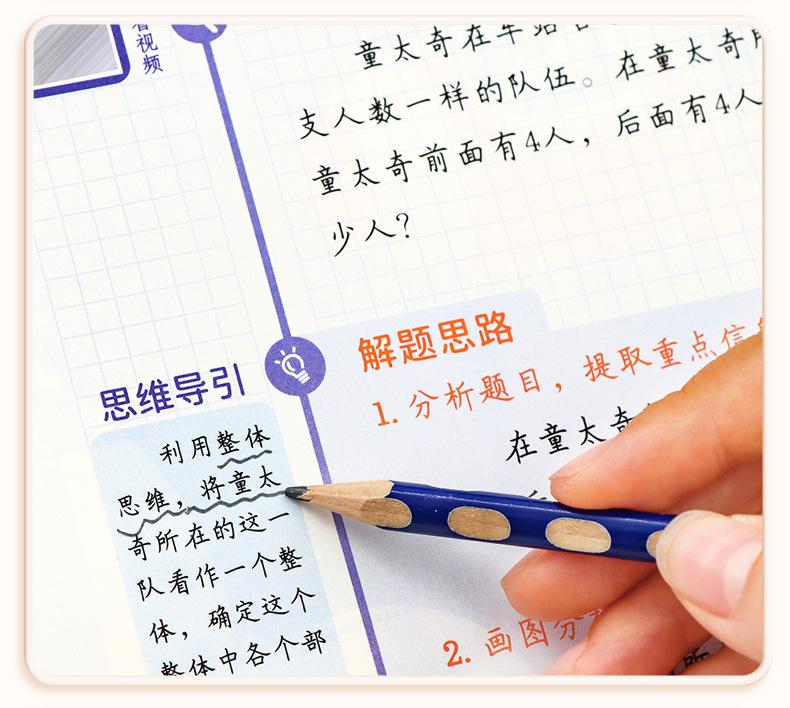 看视频
童太奇在车站
支人数一样的队伍。在童太奇所
童太奇前面有4人，后面有4人
少人？
解题思路
1. 分析题目，提取重点信息
在童太奇
思维导引
利用整体
思维，将童太
奇所在的这一
队看作一个整
体，确定这个
整体中各个部
2. 画图分